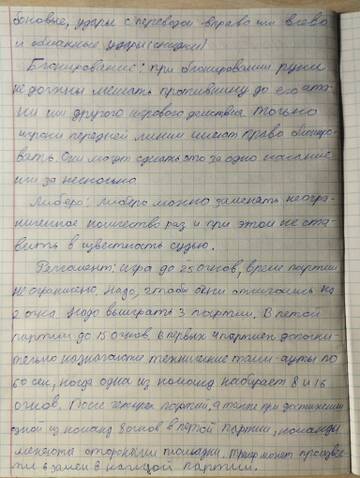 боковые, удары с переводом вправо или влево
и обманные удары (скидки)
Блокирование: при блокировании руки
не должны мешать противнику до его ата-
ки или другого игрового действия. Только
игроки передней линии имеют право блокиро-
вать. Они могут сделать это за одно касание
или за несколько
Либеро: Либеро можно заменять неогра-
ниченное количество раз и при этом не ста-
вить в известность судью.
Регламент: игра до 25 очков, время партии
не ограничено. Надо, чтобы они отличались на
2 очка. Надо выиграть 3 партии. В пятой
партии до 15 очков. В первых 4 партиях дополни-
тельно назначаются технические тайм-ауты по
60 сек, когда одна из команд набирает 8 и 16
очков. После четырех партий, а также при достижении
одной из команд 8 очков в пятой партии, команды
меняются сторонами площадки. Тренер может произвес-
ти 6 замен в каждой партии.